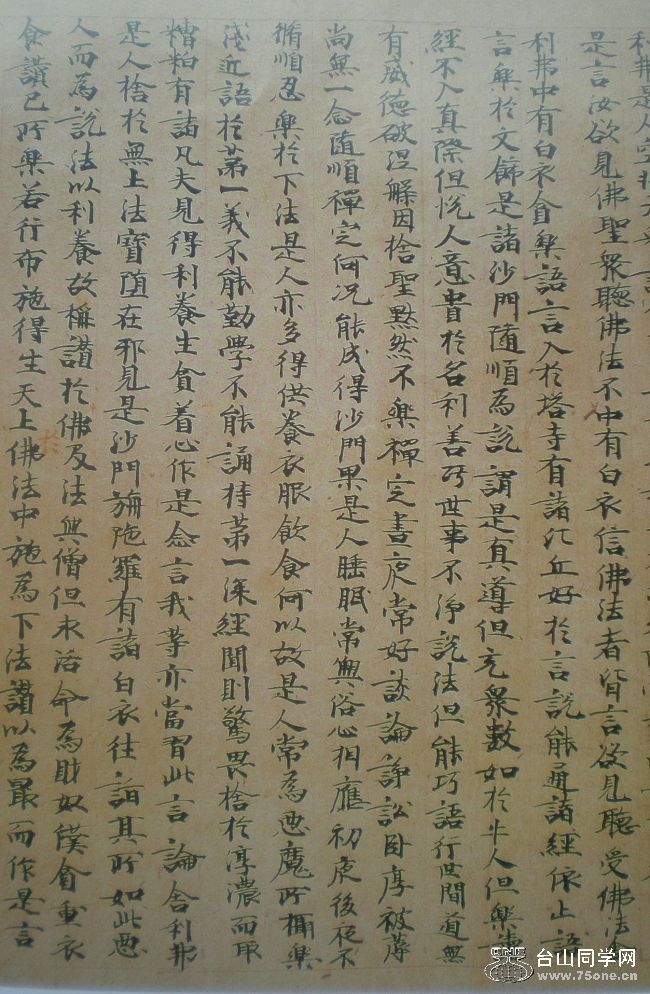 利弗是人
是言汝欲見佛聖衆聽佛法不中有白衣信佛法者皆言欲見聽受佛法
利弗中有白衣貪樂語言入於塔寺有諸比丘好於言說能通諸經依止語
言樂於文飾是諸沙門隨順為說謂是真導但充衆數如於牛人但樂
經不入真際但悅人意貴於名利善巧世事不淨說法但能巧語行世間道無
有威德破涅槃因捨聖默然不樂禪定晝夜常好談論諍訟卧厚被蓐
尚無一念隨順禪定何況能成得沙門果是人睡眠常與俗心相應初夜後夜不
脩順忍樂於下法是人亦多得供養衣服飲食何以故是人常為惡魔所攝樂
淺近語於第一義不能勤學不能誦持第一深經聞則驚畏捨於淳濃而取
糟粕有諸凡夫見得利養生貪着心作是念言我等亦當習此言論舍利弗
是人捨於無上法寶墮在邪見是沙門旃陁羅有諸白衣往詣其所如此惡
人而為說法以利養故稱讚於佛及法與僧但求活命為財奴僕貪重衣
食讚己所樂若行布施得生天上佛法中施為下法讚以為最而作是言
台山同学网
www.75one.cn